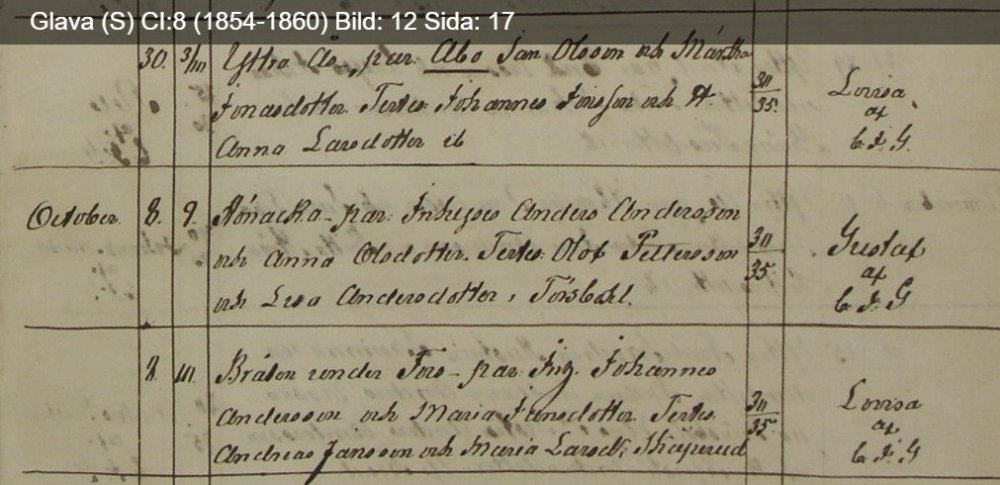 Glava (S) CI:8 (1854-1860) Bild: 12 Sida: 17
30. 3/10 Yttra Ås, par. Åbo Jan Olsson och Märtha
Jonasdotter. Testes: Johannes Jonsson och H.
Anna Larsdotter ib
30/35.
Lovisa
af
E. F. G.
October. 8. 9. par: Inhyses Anders Andersson
och Anna Olsdotter. Testes: Olof Pettersson
och Lisa Andersdotter,
30/35.
Gustaf
af
E. F. G
8. Bråten under Fors - par: Johannes
Andersson och Maria Jansdotter Testes
Andreas Jansson och Maria Larsd:
30/35.
Lovisa
af
E. F. G